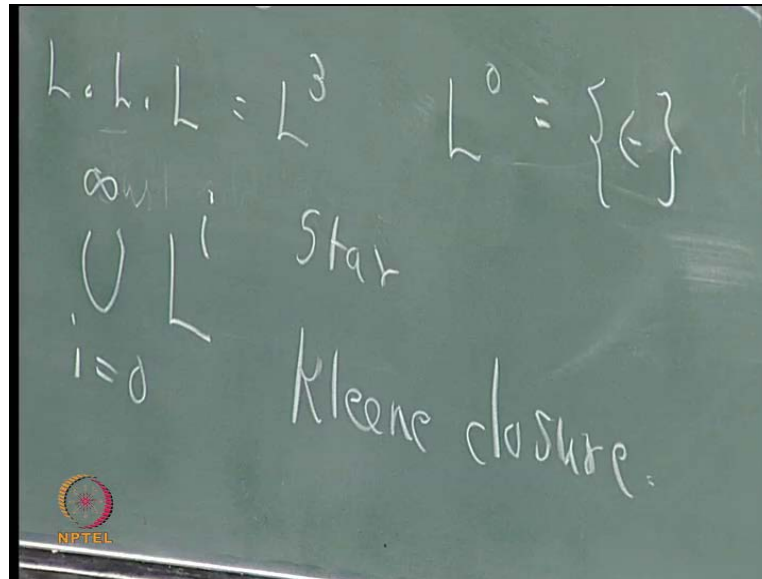 L . L . L = L³ L⁰ = {ϵ}
∞
⋃ Lⁱ Star
i=0
Kleene closure.
NPTEL